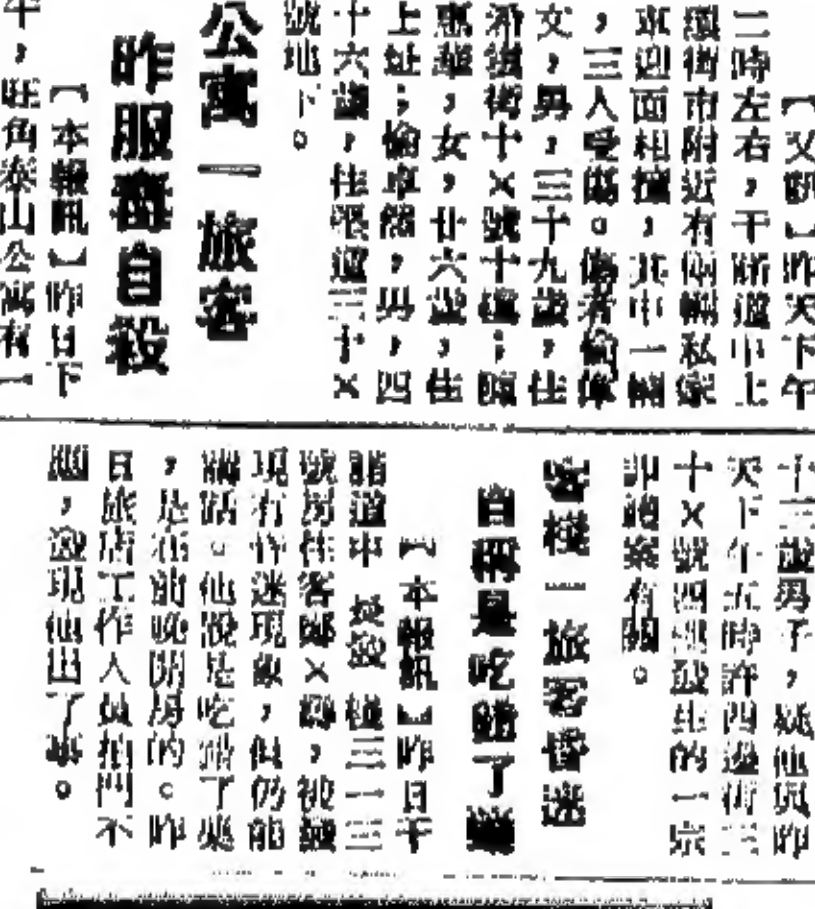 【又訊】昨天下午
二時左右，干諾道中上
環街市附近有兩輛私家
車迎面相撞，其中一輛
，三人受傷。傷者倫偉
文，男，三十九歲，住
街十×號十樓；陳
惠華，女，廿六歲，住
上址；倫卓然，男，四
十六歲，住張道三十×
號地下。
公寓一旅客
昨服毒自殺
【本報訊】昨日下
午，旺角泰山公寓有一
十三歲男子，疑他與昨
天下午五時許四邊街三
十×號四樓發生的一宗
非禮案有關。
客棧一旅客昏迷
自稱是吃錯了藥
【本報訊】昨日干
諾道中 棧三一三
號房住客鄭×，被發
現有昏迷現象，但仍能
講話。他說是吃錯了藥
，是在前晚開房的。昨
日旅店工作人員拍門不
應，發現他出了事。